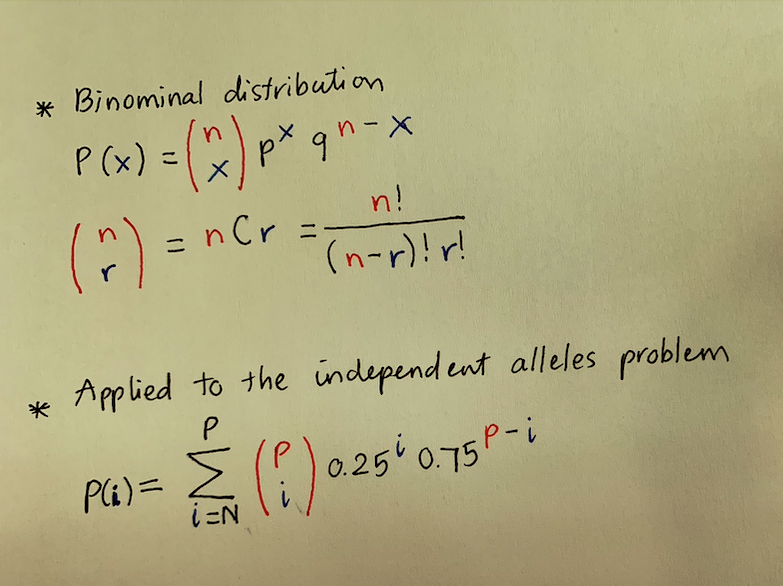 * Binominal distribution
P(x) = (n x) p^x q^n-x
(n r) = nCr = n! / (n-r)! r!
* Applied to the independent alleles problem
P(i) = P Σ i=N (P i) 0.25^i 0.75^P-i